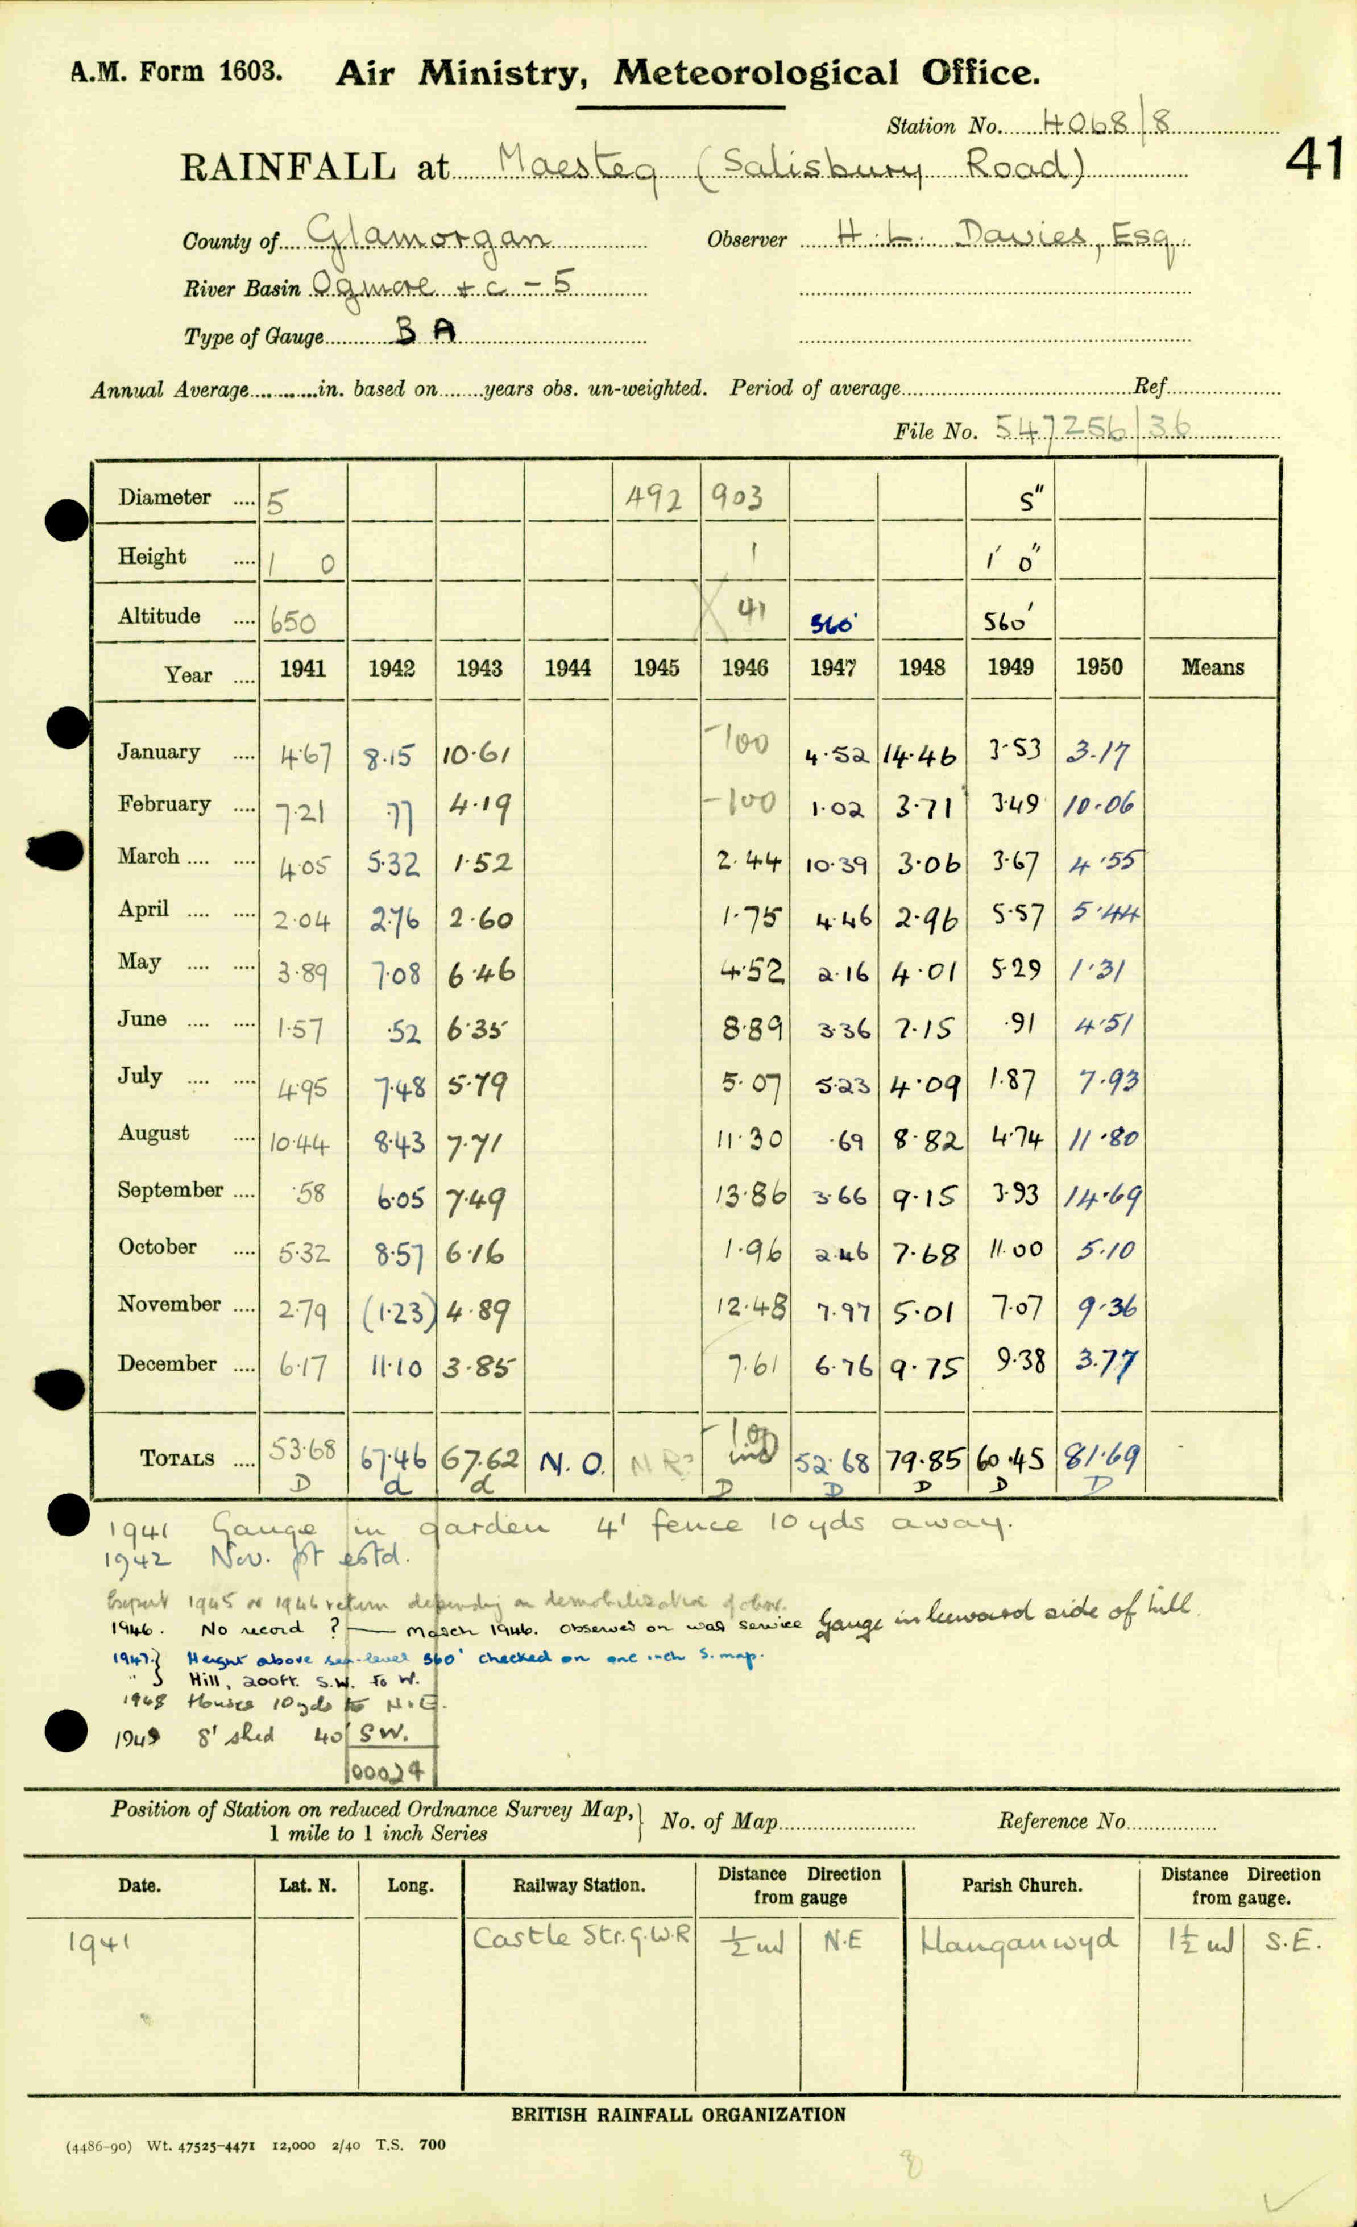 A.M. Form 1603. Air Ministry, Meteorological Office.
Station No. 4068/8
41
RAINFALL at Maesteg (Salisbury Road)
County of Glamorgan Observer H. L. Davies, Esq.
River Basin Ogmore + c - 5
Type of Gauge B A
Annual Average in. based on years obs. un-weighted. Period of average Ref.
File No. 547256/36
Diameter 5 492 903 5"
Height 1 0 1 1' 0"
Altitude 650 41 560' 560'
Year 1941 1942 1943 1944 1945 1946 1947 1948 1949 1950 Means
January 4.67 8.15 10.61 -100 4.52 14.46 3.53 3.17
February 7.21 .77 4.19 -100 1.02 3.71 3.49 10.06
March 4.05 5.32 1.52 2.44 10.39 3.06 3.67 4.55
April 2.04 2.76 2.60 1.75 4.46 2.96 5.57 5.44
May 3.89 7.08 6.46 4.52 2.16 4.01 5.29 1.31
June 1.57 .52 6.35 8.89 3.36 7.15 .91 4.51
July 4.95 7.48 5.79 5.07 5.23 4.09 1.87 7.93
August 10.44 8.43 7.71 11.30 .69 8.82 4.74 11.80
September .58 6.05 7.49 13.86 3.66 9.15 3.93 14.69
October 5.32 8.57 6.16 1.96 2.46 7.68 11.00 5.10
November 2.79 (1.23) 4.89 12.48 7.97 5.01 7.07 9.36
December 6.17 11.10 3.85 7.61 6.76 9.75 9.38 3.77
TOTALS 53.68 67.46 67.62 N.O. N R? 52.68 79.85 60.45 81.69
D d d D D D D D
1941 Gauge in garden 4' fence 10 yds away.
1942 Nov. pt estd.
Expect 1945 or 1946 return depending on demobilization of obsr.
1946. No record ? — March 1946. Observer on war service Gauge in leeward side of hill.
1947} Height above sea-level 560' checked on one inch S. map.
" } Hill, 200ft. S.W. to W.
1948 Houses 10 yds to N.E.
1949 8' shed 40' SW.
00024
Position of Station on reduced Ordnance Survey Map, } No. of Map Reference No.
1 mile to 1 inch Series
Date. Lat. N. Long. Railway Station. Distance Direction from gauge Parish Church. Distance Direction from gauge.
1941 Castle Str. G.W.R ½ ml N.E Llanganwyd 1½ ml S.E.
BRITISH RAINFALL ORGANIZATION
(4486-90) Wt. 47525-4471 12,000 2/40 T.S. 700
8